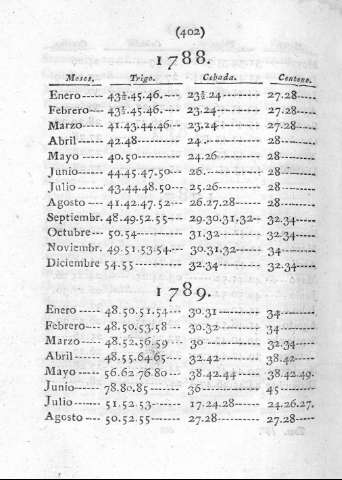 (402)
1788.
Meses. Trigo. Cebada. Centeno.
Enero ----- 43½.45.46. --- 23½.24 -------- 27.28 -----
Febrero ---- 43½.45.46. --- 23.24 --------- 27.28 -----
Marzo ----- 41.43.44.46 --- 23.24 --------- 27.28 -----
Abril ----- 42.48 --------- 24 . --------- 28 --------
Mayo ----- 40.50 ---------- 24.26 --------- 28 --------
Junio ----- 44.45.47.50 --- 26. ----------- 28 --------
Julio ----- 43.44.48.50 --- 25.26 --------- 28 --------
Agosto ---- 41.42.47.52 --- 26.27.28 ------ 28 --------
Septiembr. 48.49.52.55 --- 29.30.31.32 -- 32.34 -----
Octubre --- 50.54 --------- 31.32 --------- 32.34 -----
Noviembr. 49.51.53.54. -- 30.31.32 ------ 34 --------
Diciembre 54.55 ---------- 32.34 --------- 32.34 -----
1789.
Enero ----- 48.50.51.54 --- 30.31 --------- 34 --------
Febrero ---- 48.50.53.58 --- 30.32 --------- 34 --------
Marzo ---- 48.52.56.59 --- 30 ------------ 32.34 -----
Abril ----- 48.55.64.65 --- 32.42 --------- 38.42 -----
Mayo ----- 56.62 76.80 --- 38.42.44 ------ 38.42.49.
Junio ----- 78.80.85 ------ 36 ------------ 45 --------
Julio ----- 51.52.53 ------ 17.24.28 ------ 24.26.27.
Agosto ---- 50.52.55 ------ 27.28 --------- 27.28 -----